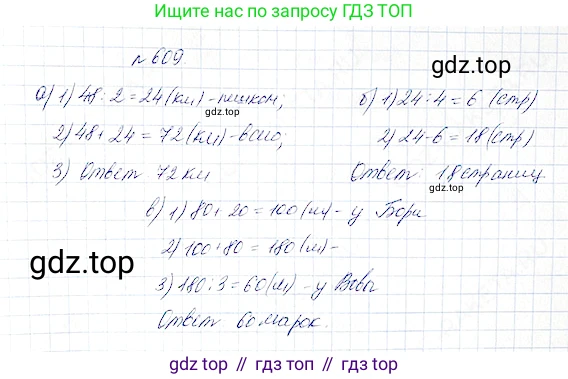 Ищите нас по запросу ГДЗ ТОП
№ 609.
gdz.top
а) 1) 48 : 2 = 24 (км) - пешком;
б) 1) 24 : 4 = 6 (стр)
2) 48 + 24 = 72 (км) - всего;
2) 24 - 6 = 18 (стр)
3) Ответ 72 км
Ответ: 18 страниц
gdz.top
в) 1) 80 + 20 = 100 (м) - у Бори
2) 100 + 80 = 180 (м) -
gdz.top
3) 180 : 3 = 60 (м) - у Вовы
Ответ 60 марок.
gdz.top // гдз топ // gdz.top // гдз топ